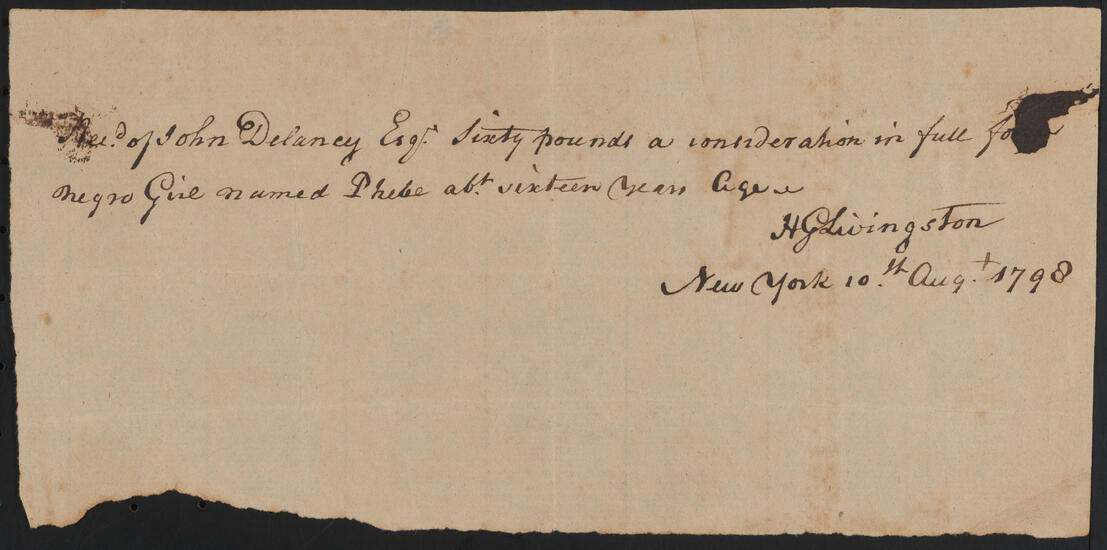 Rec.d of John Delancey Esqr. Sixty pounds a consideration in full for a
negro Girl named Phebe abt. sixteen Years Age
HGLivingston
New York 10.th Augt. 1798